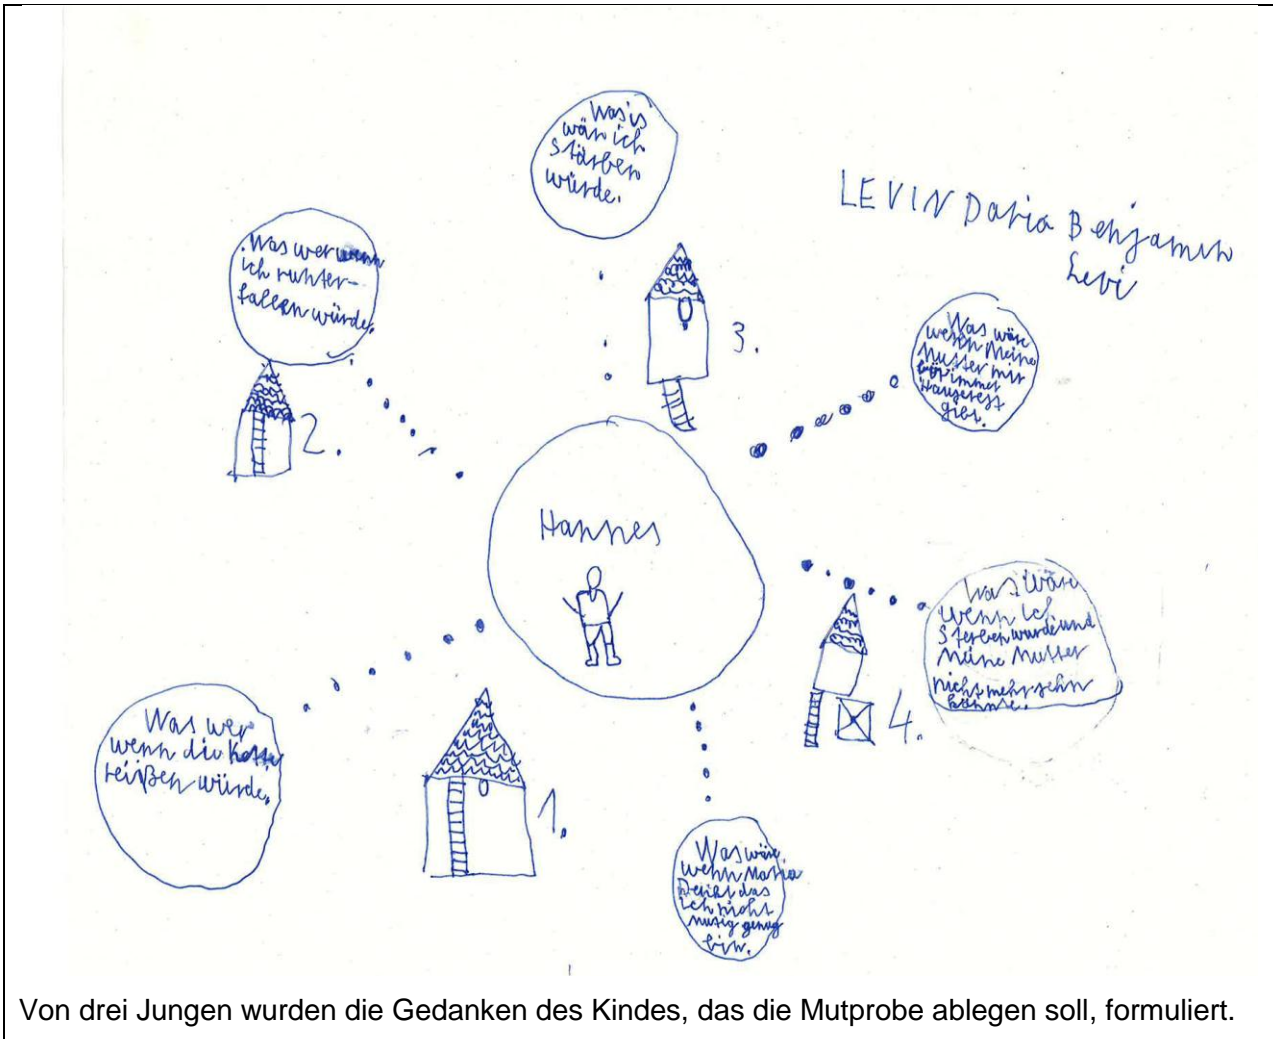 Was is
wän ich
stärben
würde.
LEVIN Daria Benjamin
Levi
Was wer wenn
ich runter-
fallen würde.
3.
Was wäre
wenn Meine
Mutter mir
für immer
Hausarest
gibt.
2.
Hannes
Was wäre
wenn ich
sterben wurde und
Meine Mutter
nicht mehr sehn
könnte.
4.
Was wer
wenn die
reißen würde.
1.
Was wäre
wenn
Denkt das
ich nicht
mutig genug
bin.
Von drei Jungen wurden die Gedanken des Kindes, das die Mutprobe ablegen soll, formuliert.